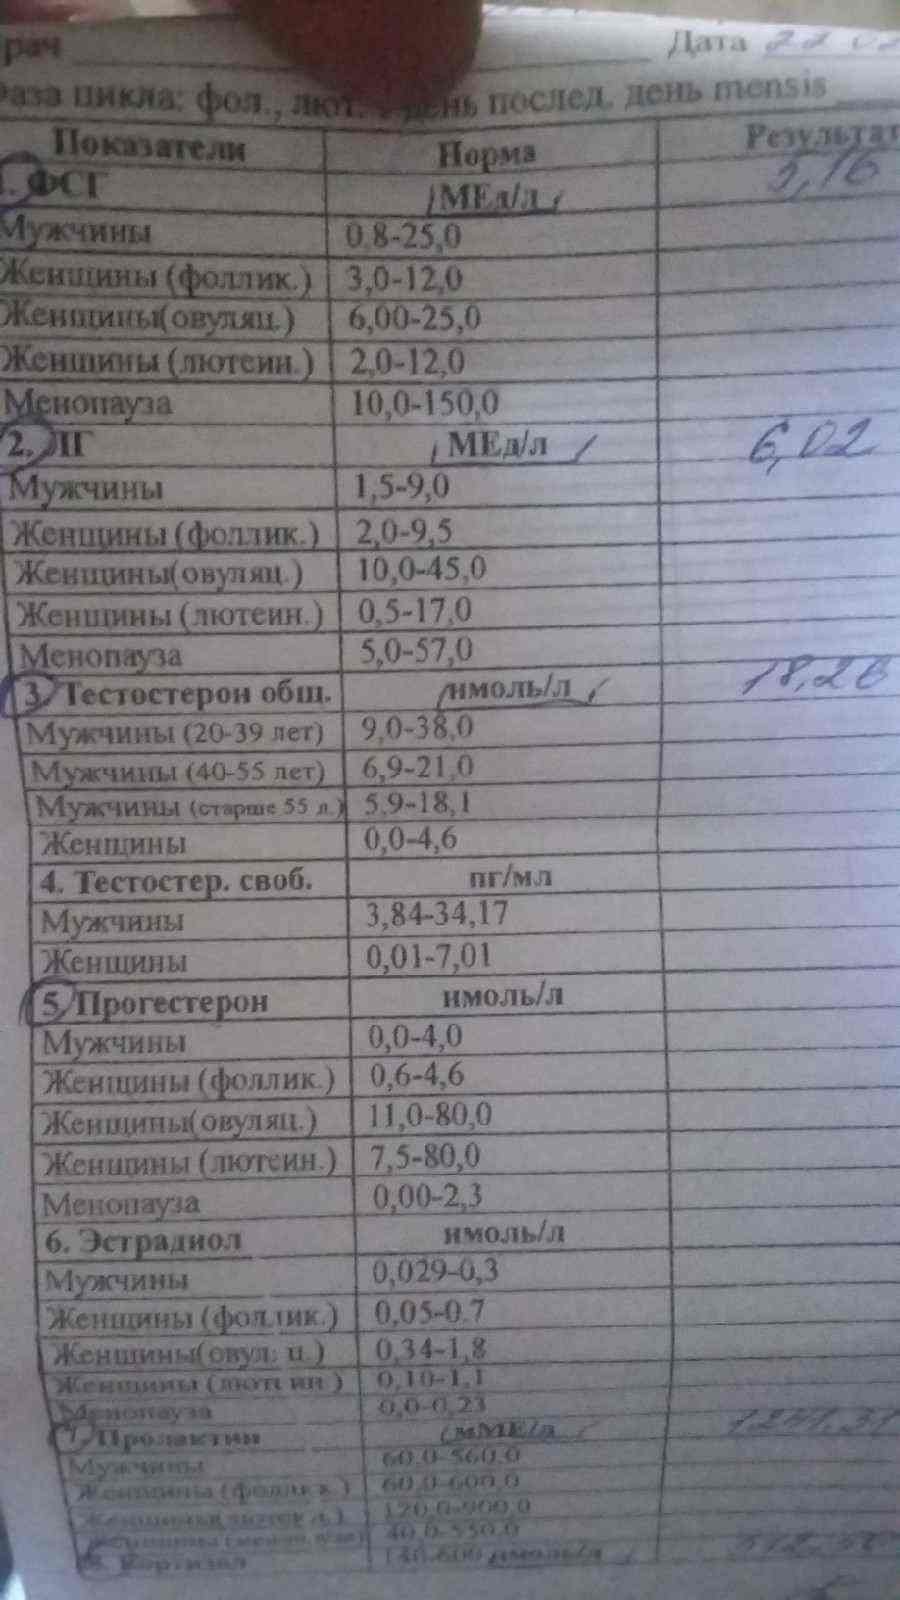 Дата 22 02
фаза цикла: фол., лют. день послед. день mensis
Показатели Норма Результат
1. ФСГ МЕд/л 5,16
Мужчины 0.8-25,0
Женщины (фоллик.) 3,0-12,0
Женщины(овуляц.) 6,00-25,0
Женщины (лютеин.) 2,0-12,0
Менопауза 10,0-150,0
2. ЛГ МЕд/л 6,02
Мужчины 1,5-9,0
Женщины (фоллик.) 2,0-9,5
Женщины(овуляц.) 10,0-45,0
Женщины (лютеин.) 0,5-17,0
Менопауза 5,0-57,0
3. Тестостерон общ. нмоль/л 18,26
Мужчины (20-39 лет) 9,0-38,0
Мужчины (40-55 лет) 6,9-21,0
Мужчины (старше 55 л.) 5,9-18,1
Женщины 0,0-4,6
4. Тестостер. своб. пг/мл
Мужчины 3,84-34,17
Женщины 0,01-7,01
5. Прогестерон нмоль/л
Мужчины 0,0-4,0
Женщины (фоллик.) 0,6-4,6
Женщины(овуляц.) 11,0-80,0
Женщины (лютеин.) 7,5-80,0
Менопауза 0,00-2,3
6. Эстрадиол нмоль/л
Мужчины 0,029-0,3
Женщины (фоллик.) 0,05-0.7
Женщины(овул. ц.) 0,34-1,8
Женщины (лютеин.) 0,10-1,1
Менопауза 0,0-0,23
7. Пролактин мМЕ/л 1241,31
Мужчины 60,0-560,0
Женщины (фоллик.) 60,0-600,0
Женщины 120,0-900,0
Женщины 40,0-550,0
8. Кортизол 140-600 нмоль/л